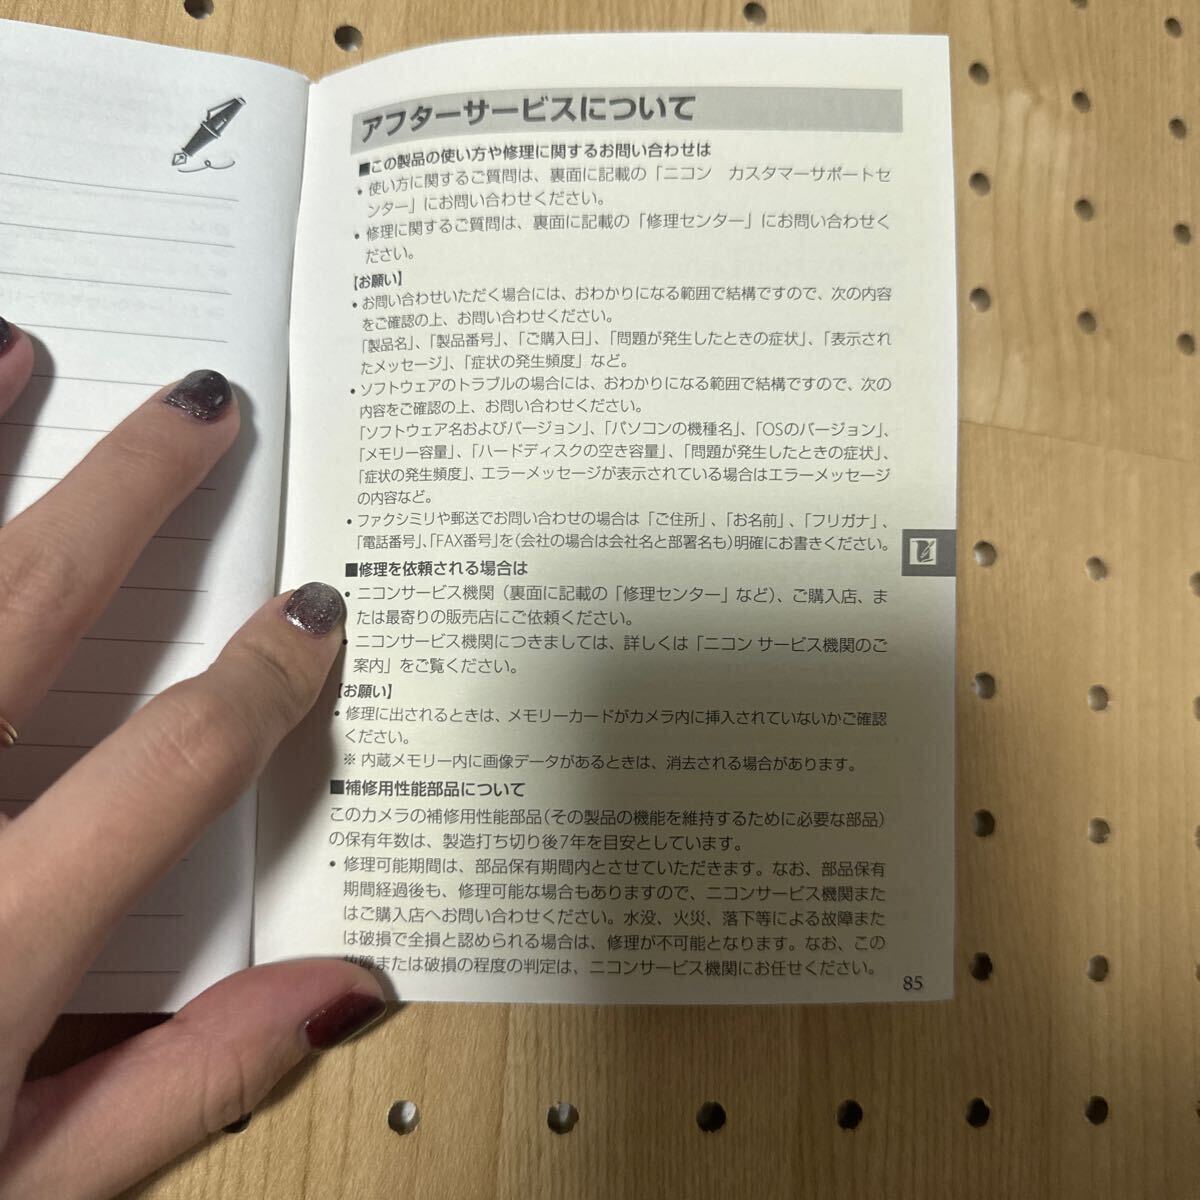 アフターサービスについて
■この製品の使い方や修理に関するお問い合わせは
• 使い方に関するご質問は、裏面に記載の「ニコン　カスタマーサポートセ
ンター」にお問い合わせください。
• 修理に関するご質問は、裏面に記載の「修理センター」にお問い合わせく
ださい。
【お願い】
• お問い合わせいただく場合には、おわかりになる範囲で結構ですので、次の内容
をご確認の上、お問い合わせください。
「製品名」、「製品番号」、「ご購入日」、「問題が発生したときの症状」、「表示され
たメッセージ」、「症状の発生頻度」など。
• ソフトウェアのトラブルの場合には、おわかりになる範囲で結構ですので、次の
内容をご確認の上、お問い合わせください。
「ソフトウェア名およびバージョン」、「パソコンの機種名」、「OSのバージョン」、
「メモリー容量」、「ハードディスクの空き容量」、「問題が発生したときの症状」、
「症状の発生頻度」、エラーメッセージが表示されている場合はエラーメッセージ
の内容など。
• ファクシミリや郵送でお問い合わせの場合は「ご住所」、「お名前」、「フリガナ」、
「電話番号」、「FAX番号」を（会社の場合は会社名と部署名も）明確にお書きください。
■修理を依頼される場合は
• ニコンサービス機関（裏面に記載の「修理センター」など）、ご購入店、ま
たは最寄りの販売店にご依頼ください。
• ニコンサービス機関につきましては、詳しくは「ニコン サービス機関のご
案内」をご覧ください。
【お願い】
• 修理に出されるときは、メモリーカードがカメラ内に挿入されていないかご確認
ください。
※ 内蔵メモリー内に画像データがあるときは、消去される場合があります。
■補修用性能部品について
このカメラの補修用性能部品（その製品の機能を維持するために必要な部品）
の保有年数は、製造打ち切り後7年を目安としています。
• 修理可能期間は、部品保有期間内とさせていただきます。なお、部品保有
期間経過後も、修理可能な場合もありますので、ニコンサービス機関また
はご購入店へお問い合わせください。水没、火災、落下等による故障また
は破損で全損と認められる場合は、修理が不可能となります。なお、この
故障または破損の程度の判定は、ニコンサービス機関にお任せください。
85